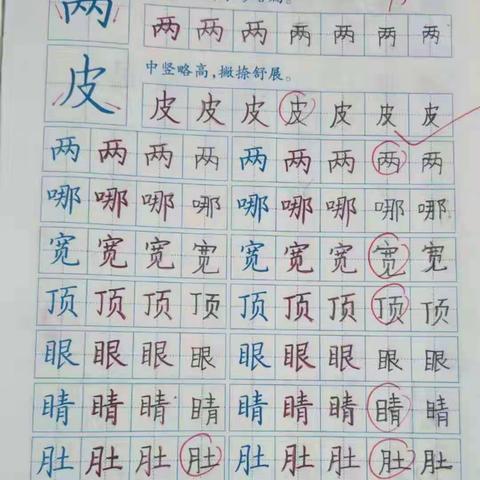 两 两 两 两 两 两 两 两
皮 中竖略高，撇捺舒展。
皮 皮 皮 皮 皮 皮 皮
两 两 两 两 两 两 两 两
哪 哪 哪 哪 哪 哪 哪 哪
宽 宽 宽 宽 宽 宽 宽 宽
顶 顶 顶 顶 顶 顶 顶 顶
眼 眼 眼 眼 眼 眼 眼 眼
睛 睛 睛 睛 睛 睛 睛 睛
肚 肚 肚 肚 肚 肚 肚 肚